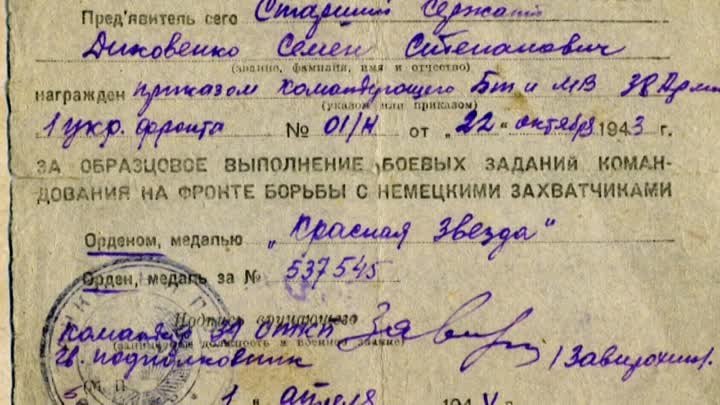 Пред'явитель сего Старший Сержант
Диковенко Семен Степанович
(звание, фамилия, имя и отчество)
награжден приказом Командующего Бт и МВ 38 Арми
(указом или приказом)
1 укр. фронта № 01/Н от "22" октября 1943 г.
ЗА ОБРАЗЦОВОЕ ВЫПОЛНЕНИЕ БОЕВЫХ ЗАДАНИЙ КОМАН-
ДОВАНИЯ НА ФРОНТЕ БОРЬБЫ С НЕМЕЦКИМИ ЗАХВАТЧИКАМИ
Орденом, медалью „Красная Звезда"
Орден, медаль за № 537545
Подпись вручающего
Командир
(занимаемая должность и военное звание)
Гв. подполковник
М. П.
"1" апреля 194